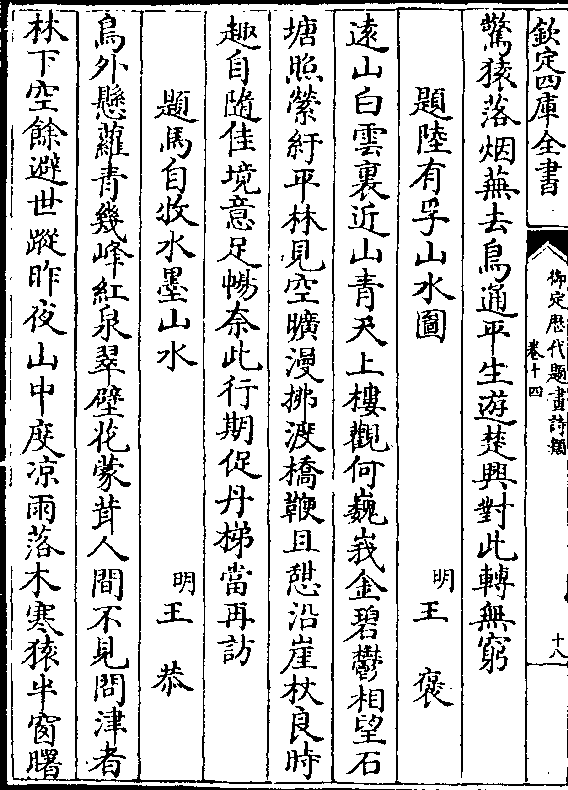 欽定四庫全書
御定歷代題畫詩類
卷十四
十八
驚猿落烟蕪去鳥通平生遊楚興對此轉無窮
題陸有孚山水圖
明王褒
遠山白雲裏近山青天上樓觀何巍峩金碧鬱相望石
塘照縈紆平林見空曠漫拂渡橋鞭且憩沿崖杖良時
趣自隨佳境意足暢奈此行期促丹梯當再訪
題馬自牧水墨山水
明王恭
鳥外懸蘿青幾峰紅泉翠壁花蒙茸人間不見問津者
林下空餘避世蹤昨夜山中度凉雨落木寒猿半窗曙